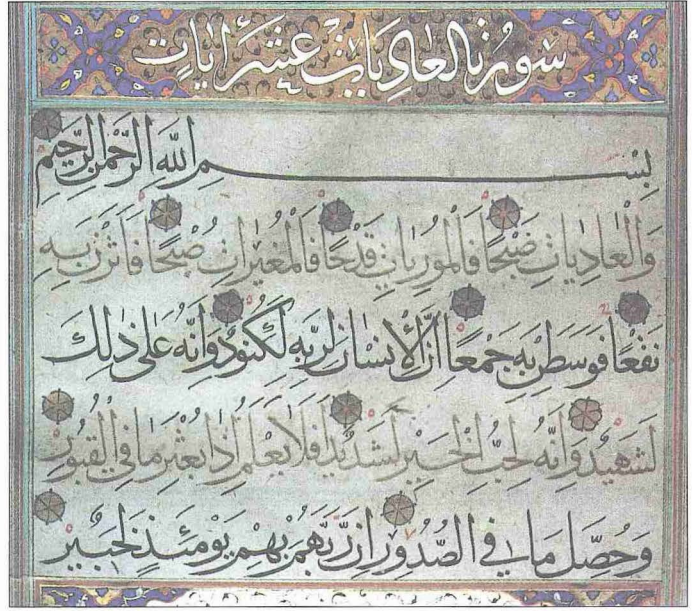 سُورَةُ العَادِيَاتِ عَشَرَ اٰيَاتٍ
بِسْمِ اللهِ الرَّحْمٰنِ الرَّحِيْمِ
وَالْعَادِيَاتِ ضَبْحًا فَالْمُورِيَاتِ قَدْحًا فَالْمُغِيْرَاتِ صُبْحًا فَاَثَرْنَ بِهِ
نَقْعًا فَوَسَطْنَ بِهِ جَمْعًا اِنَّ الْاِنْسَانَ لِرَبِّهِ لَكَنُودٌ وَاِنَّهُ عَلٰى ذٰلِكَ
لَشَهِيْدٌ وَاِنَّهُ لِحُبِّ الْخَيْرِ لَشَدِيْدٌ اَفَلَا يَعْلَمُ اِذَا بُعْثِرَ مَا فِي الْقُبُورِ
وَحُصِّلَ مَا فِي الصُّدُورِ اِنَّ رَبَّهُمْ بِهِمْ يَوْمَئِذٍ لَخَبِيْرٌ